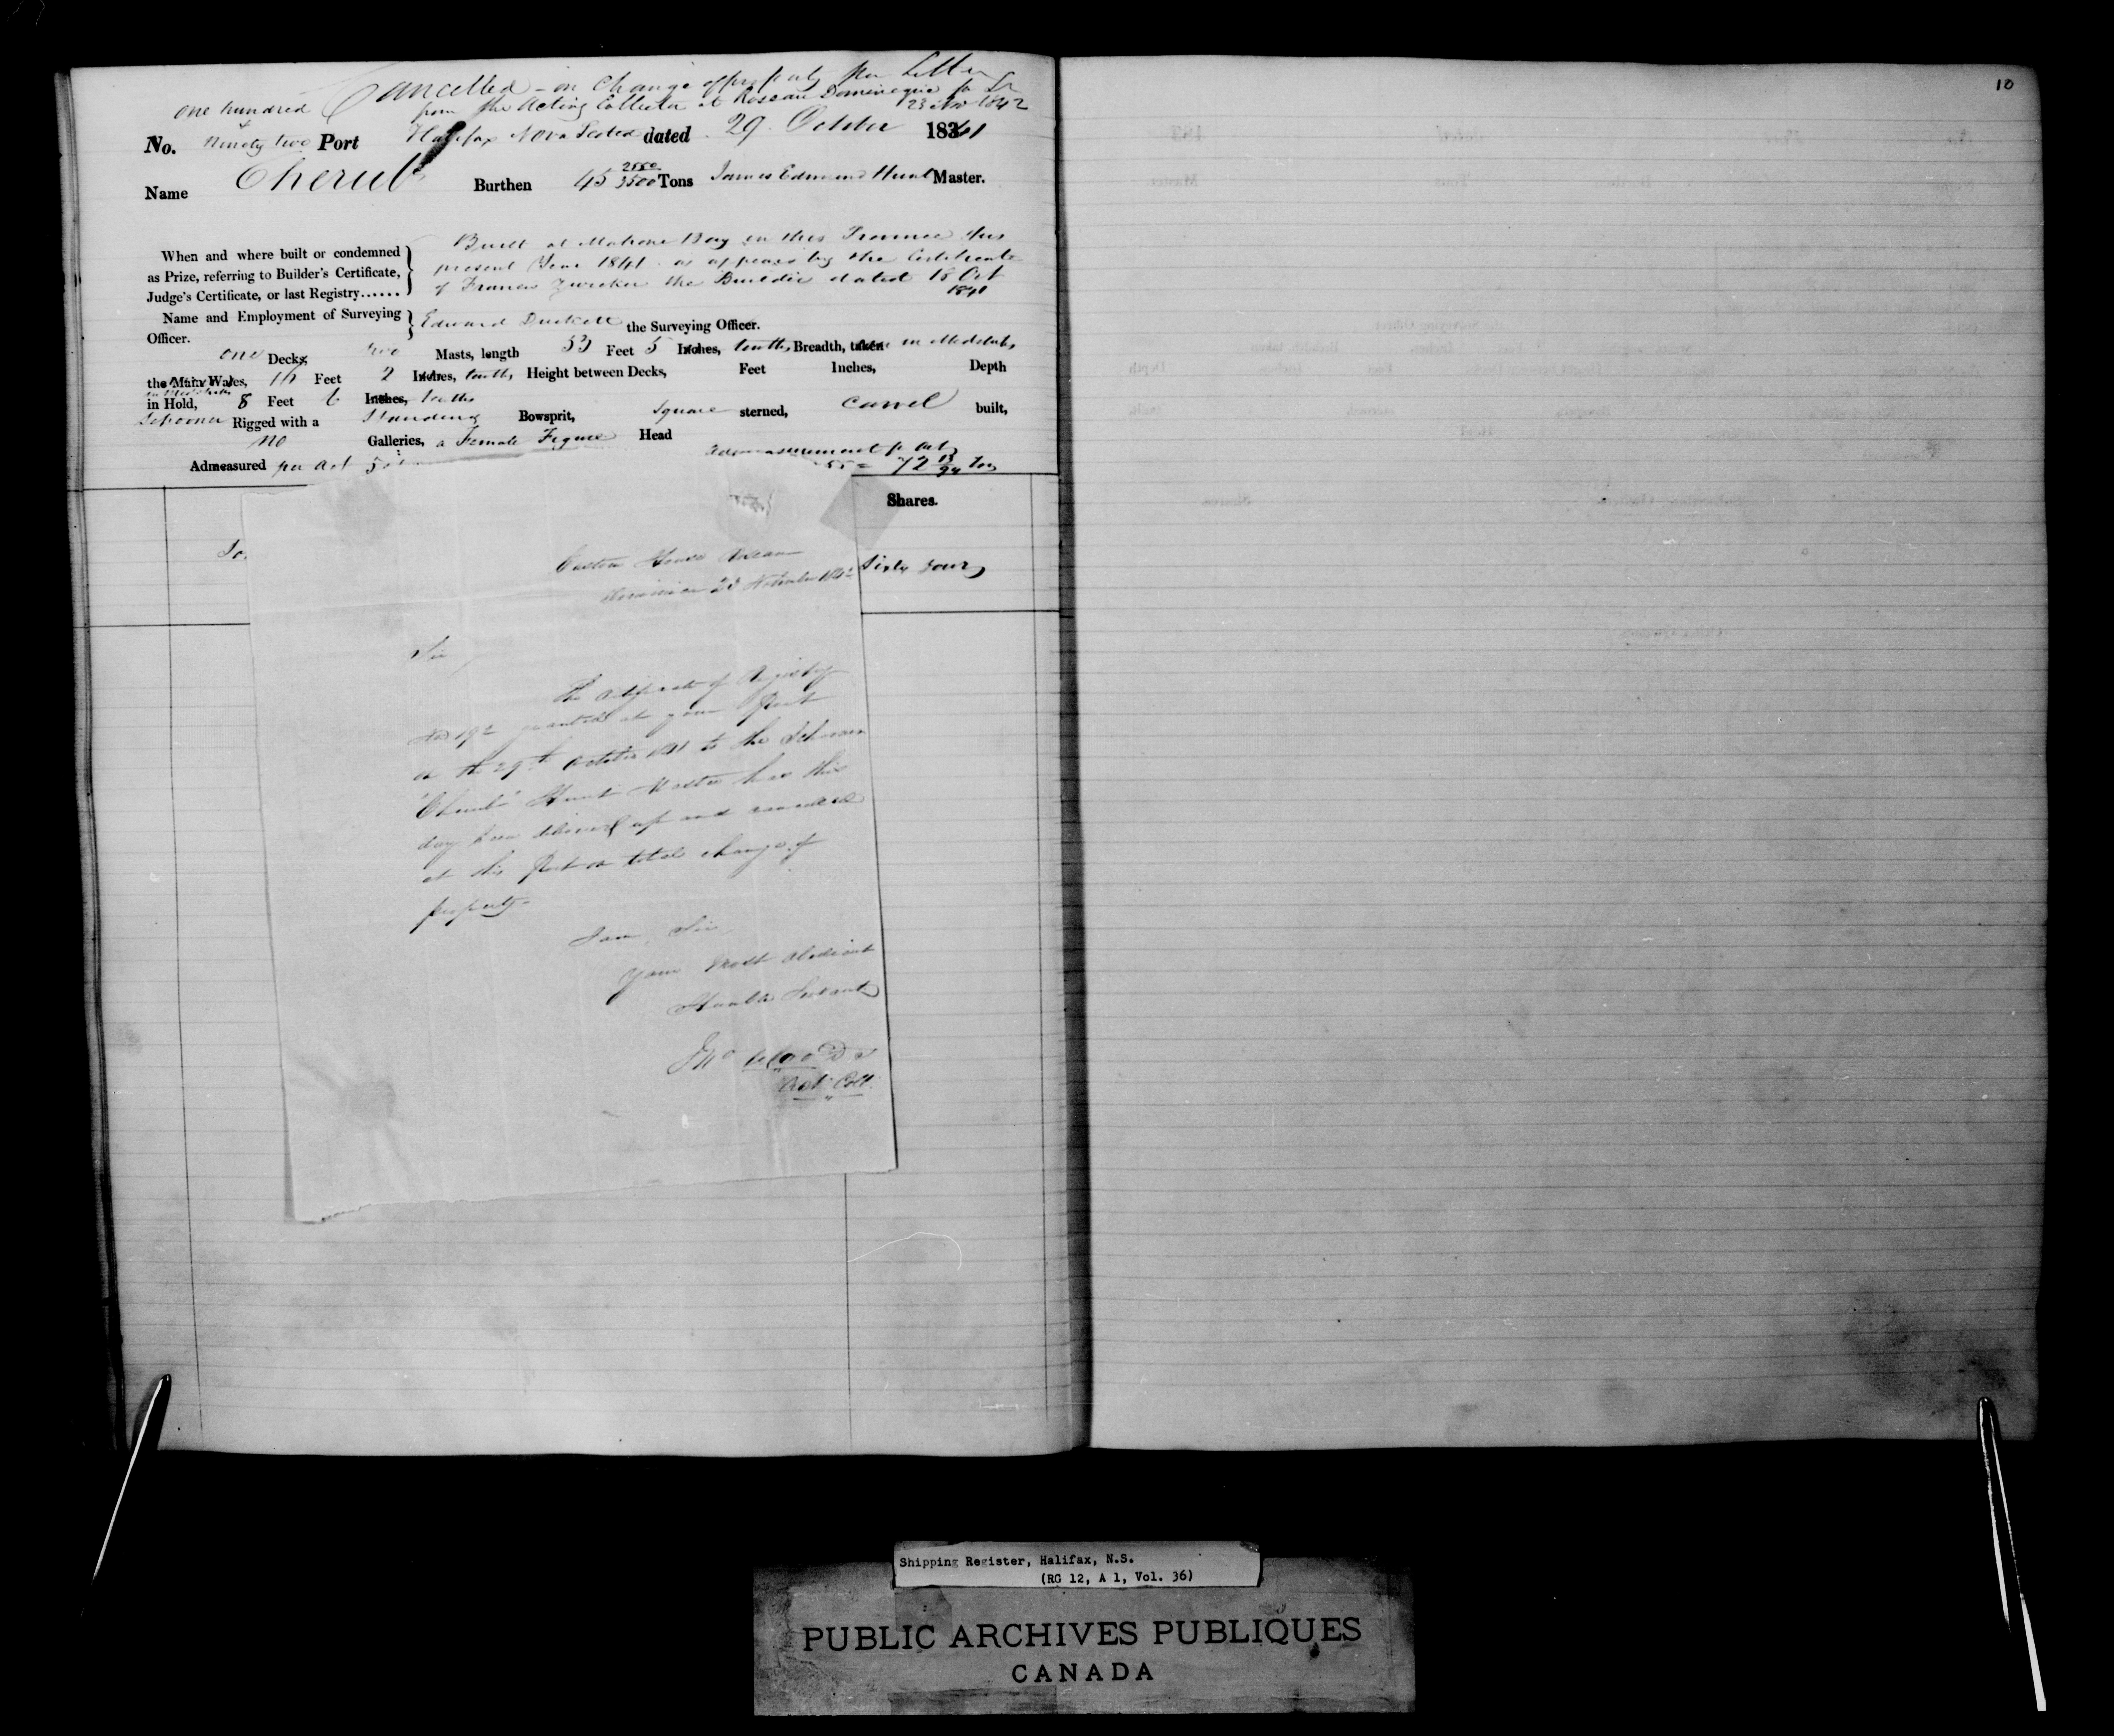 Cancelled - on Change of property per Letter
from the Acting Collector at Roseau Dominique
23 Nov 1842
one hundred
&
No. Ninety two Port Halifax Nova Scotia dated 29 October 1841
Name Cherub Burthen 45 2550/3500 Tons James Edmund Hunt Master.
When and where built or condemned
as Prize, referring to Builder's Certificate,
Judge's Certificate, or last Registry......
Built at Mahone Bay in this Province this
present Year 1841 as appears by the Certificate
of Francis Zwicker the Builder dated 18 Oct
1841
Name and Employment of Surveying
Officer.
Edward Duckett the Surveying Officer.
one Decks, two Masts, length 53 Feet 5 Inches, tenths, Breadth, taken in Midships
the Main Wales, 16 Feet 2 Inches, tenths, Height between Decks, Feet Inches, Depth
in Midships
in Hold, 8 Feet 6 Inches, tenths
Schooner Rigged with a Standing Bowsprit, Square sterned, Carvel built,
no Galleries, a Female Figure Head
Admeasured per Act
admeasurement pr Act
55 = 72 13/94 Tons
Shares.
Jo
Sixty four
Custom House Roseau
Dominica 23 November 1842
Sir,
The Certificate of Registry
No 192 granted at your Port
on the 29th October 1841 to the Schooner
"Cherub" Hunt Master has this
day been delivered up and cancelled
at this Port on total change of
property.
I am, Sir,
Your Most Obedient
Humble Servant
Jno
Actg Coll.
10
Shipping Register, Halifax, N.S.
(RG 12, A 1, Vol. 36)
PUBLIC ARCHIVES PUBLIQUES
CANADA